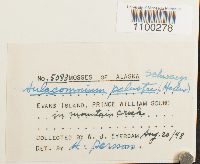 1100278
No. 5093 MOSSES OF ALASKA
Aulacomnium palustre (Hedw.) Schwaegr
EVANS ISLAND, PRINCE WILLIAM SOUND
in mountain creek
COLLECTED BY W. J. EYERDAM Aug. 20/48
Det. by H. Persson.